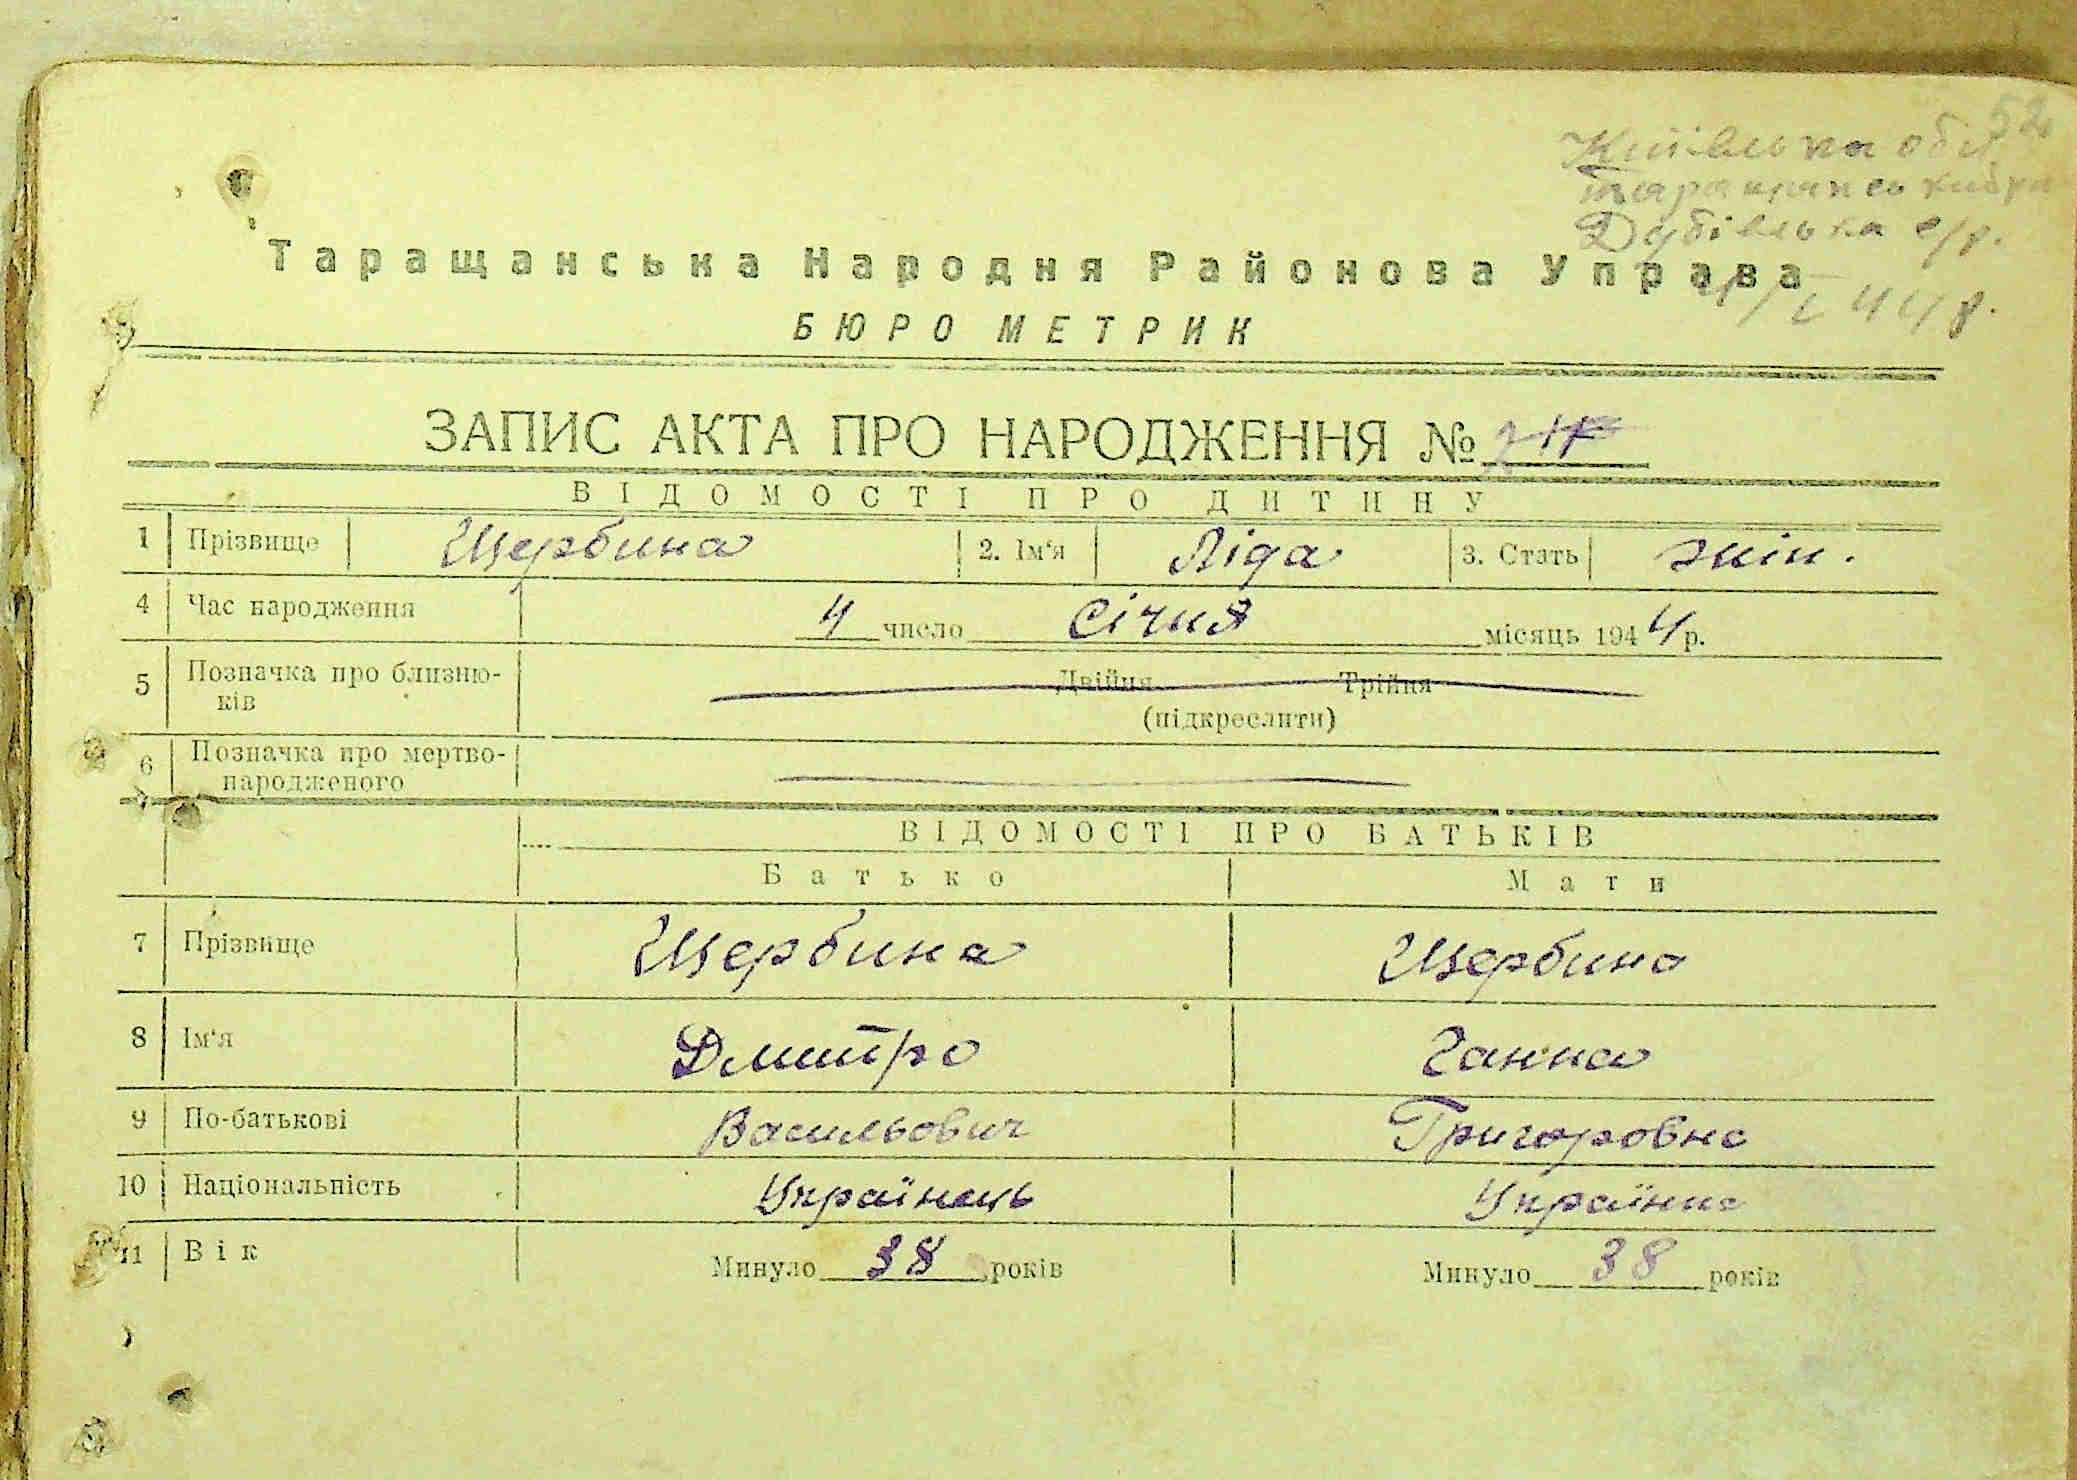 52
Київська обл.
Таращанський р-н
Дубівська с/р.
4/I 44 р.
Таращанська Народня Районова Управа
БЮРО МЕТРИК
ЗАПИС АКТА ПРО НАРОДЖЕННЯ №
ВІДОМОСТІ ПРО ДИТИНУ
1 Прізвище Щербина 2. Ім'я Ліда 3. Стать жін.
4 Час народження 4 число Січня місяць 1944 р.
5 Позначка про близню- Двійня Трійня
ків (підкреслити)
6 Позначка про мертво-
народженого
ВІДОМОСТІ ПРО БАТЬКІВ
Батько Мати
7 Прізвище Щербина Щербина
8 Ім'я Дмитро Ганна
9 По-батькові Васильович Григоровна
10 Національність Українець Українка
11 Вік Минуло 38 років Минуло 38 років